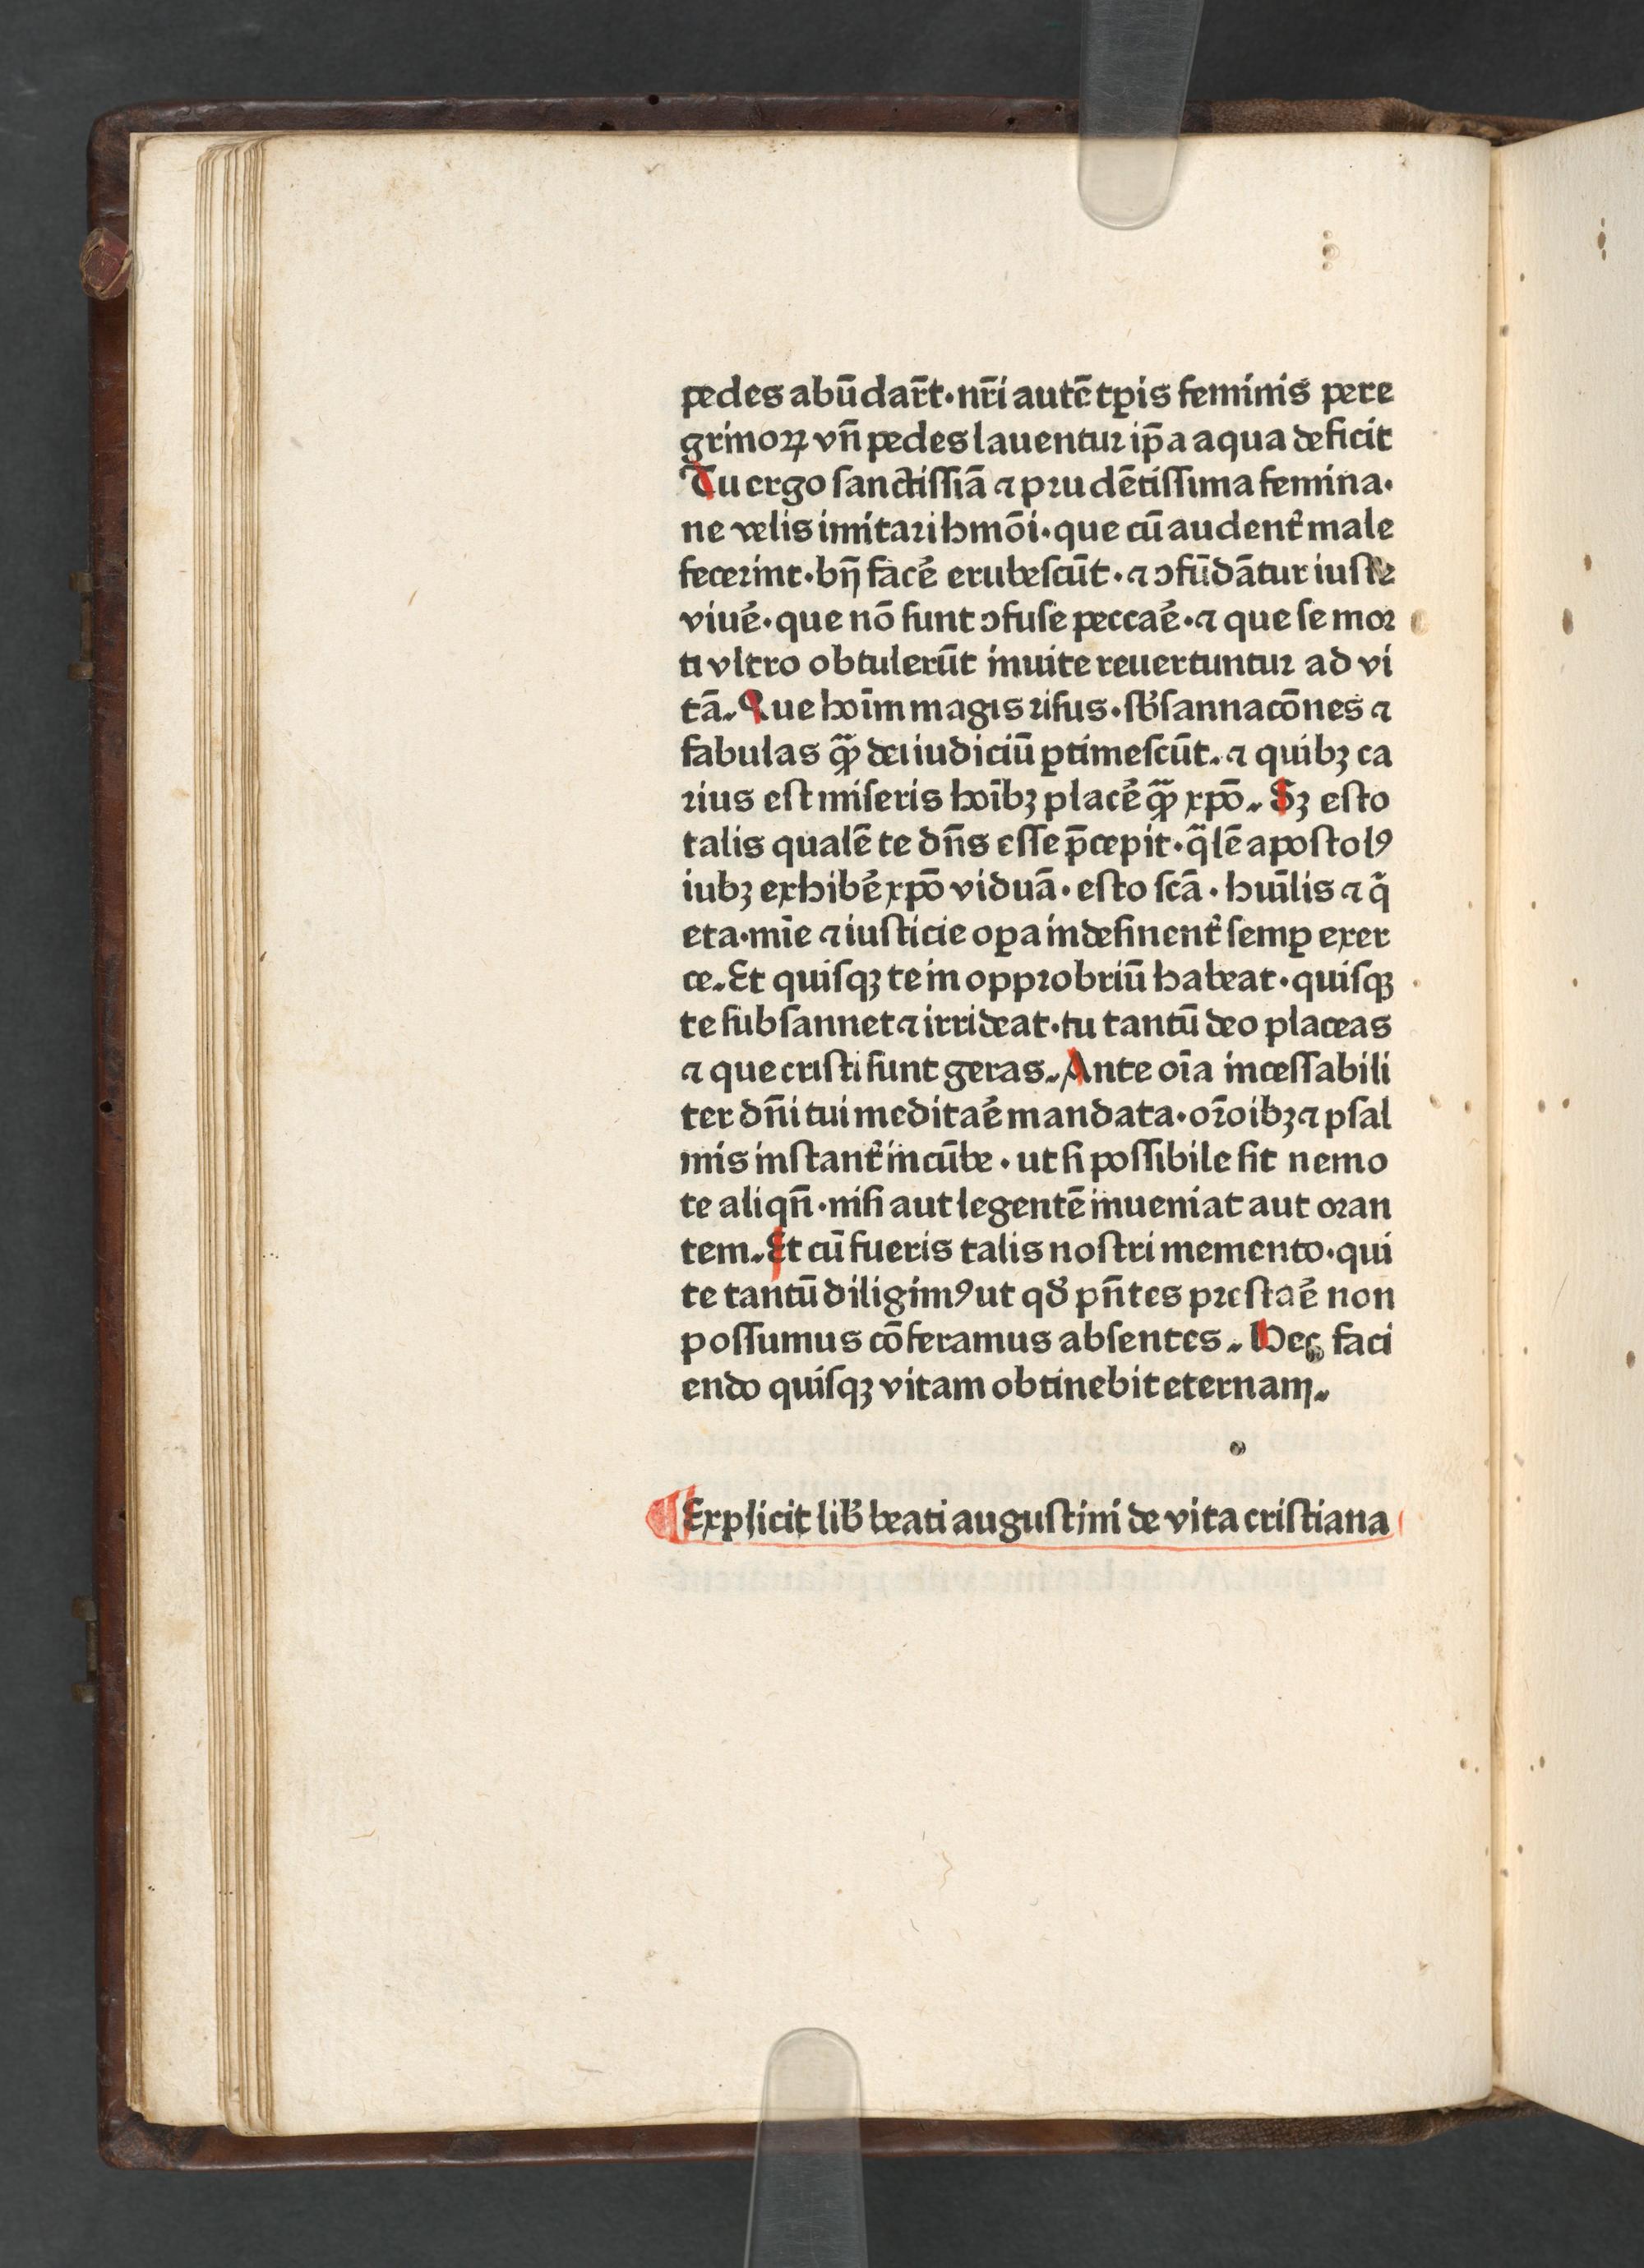 pedes abūdar̄t·nr̄i autē tꝑis feminis pere
grinoꝝ vn̄ pedes lauentur ip̄a aqua deficit
Tu ergo sanctissiā ⁊ prudētissima femina·
ne velis imitari hmōi·que cū audent̉ male
fecerint·bn̄ facē erubescūt·⁊ ↄfūdātur iuste
viuē·que nō sunt ↄfuse peccaē·⁊ que se mor
ti vltro obtulerūt inuite reuertuntur ad vi
tā. Que hoīm magis risus·sb̄sannacōnes ⁊
fabulas qua̅ꝫ dei iudiciū ꝑtimescūt. ⁊ quibꝫ ca
rius est miseris hoībꝫ placē qua̅ꝫ xp̄o. Sꝫ esto
talis qualē te dn̄s esse p̄cepit·q̄lē apostolꝰ
iubꝫ exhibē xp̄o viduā·esto scā·huīlis ⁊ q̄
eta·mīe ⁊ iusticie oꝑa indefinent̉ semꝑ exer
ce. Et quisqꝫ te in opprobriū habeat·quisqꝫ
te subsannet ⁊ irrideat·tu tantū deo placeas
⁊ que cristi sunt geras. Ante oīa incessabili
ter dn̄i tui meditaē mandata·or̄oibꝫ ⁊ psal
mis instant̉ incūbe·ut si possibile sit nemo
te aliqn̄·nisi aut legentē inueniat aut oran
tem. Et cū fueris talis nostri memento·qui
te tantū diligimꝰ ut qd̄ pn̄tes prestaē non
possumus cōferamus absentes. Hec faci
endo quisqꝫ vitam obtinebit eternam.
Explicit lib̄ beati augustini de vita cristiana